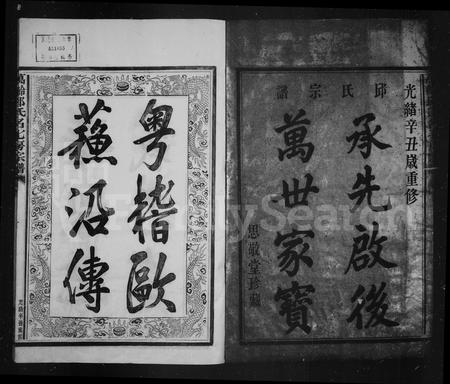 光緒辛丑歲重修
邱氏宗譜
承先啟後
萬世家寶
思敬堂珍藏
粵稽歐
蘓沿傳
FamilySearch